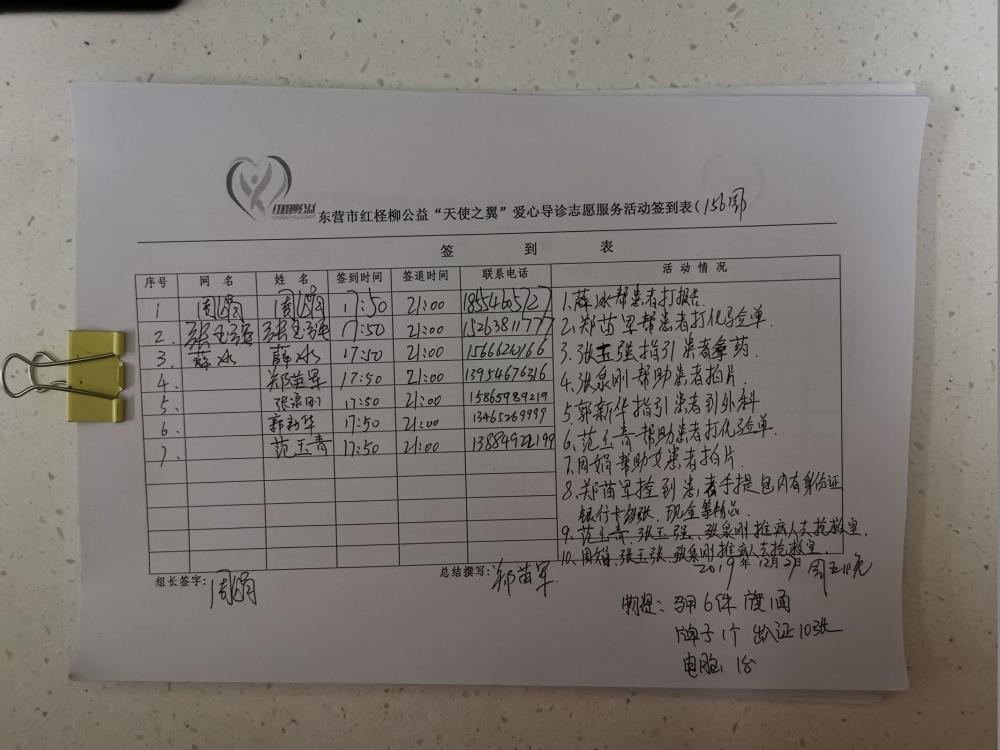 红柽柳公益
东营市红柽柳公益“天使之翼”爱心导诊志愿服务活动签到表(156周)
签 到 表
序号 网 名 姓 名 签到时间 签退时间 联系电话 活动情况
1 周娟 周娟 17:50 21:00 18554605727
2. 张玉强 张玉强 17:50 21:00 15263811777
3. 薛冰 薛冰 17:50 21:00
4. 郑苗军 17:50 21:00 13954676316
5. 张泉刚 17:50 21:00 15865989219
6. 郭新华 17:50 21:00 13465269999
7. 范玉青 17:50 21:00
1.薛冰帮患者打报告.
2.郑苗军帮患者打化验单.
3.张玉强指引患者拿药.
4.张泉刚帮助患者拍片.
5.郭新华指引患者到外科
6.范玉青帮助患者打化验单.
7.周娟帮助女患者拍片.
8.郑苗军捡到患者手提包内有身份证
银行卡 现金等物品.
9.范玉青、张玉强、张泉刚推病人去抢救室.
10.周娟、张玉张、张泉刚推病人去抢救室.
组长签字: 周娟 总结撰写: 郑苗军
2019年12月27 周五
物资: 马甲6件
牌子1个 出入证10张
电脑1台